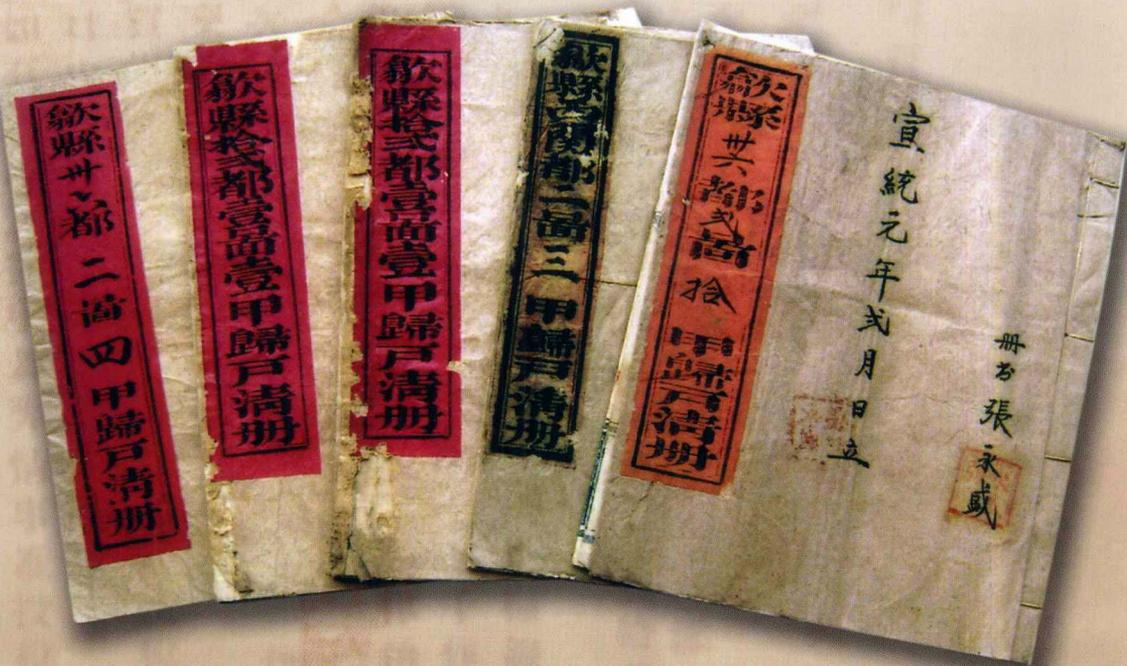 歙縣卅都二啚四甲歸户清册
歙縣拾弍都壹啚壹甲歸户清册
歙縣拾弍都壹啚壹甲歸户清册
歙縣關都二啚三甲歸户清册
歙縣卅六都弍啚拾甲歸户清册
宣統元年弍月日立
册书張永盛